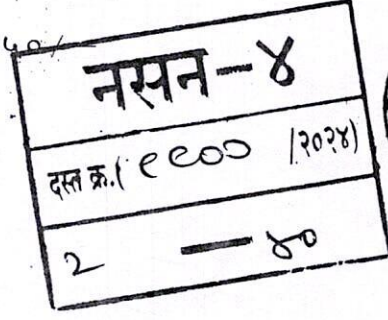 नसन-४
दस्त क्र.( ९९०० /२०२४)
२ — ४०